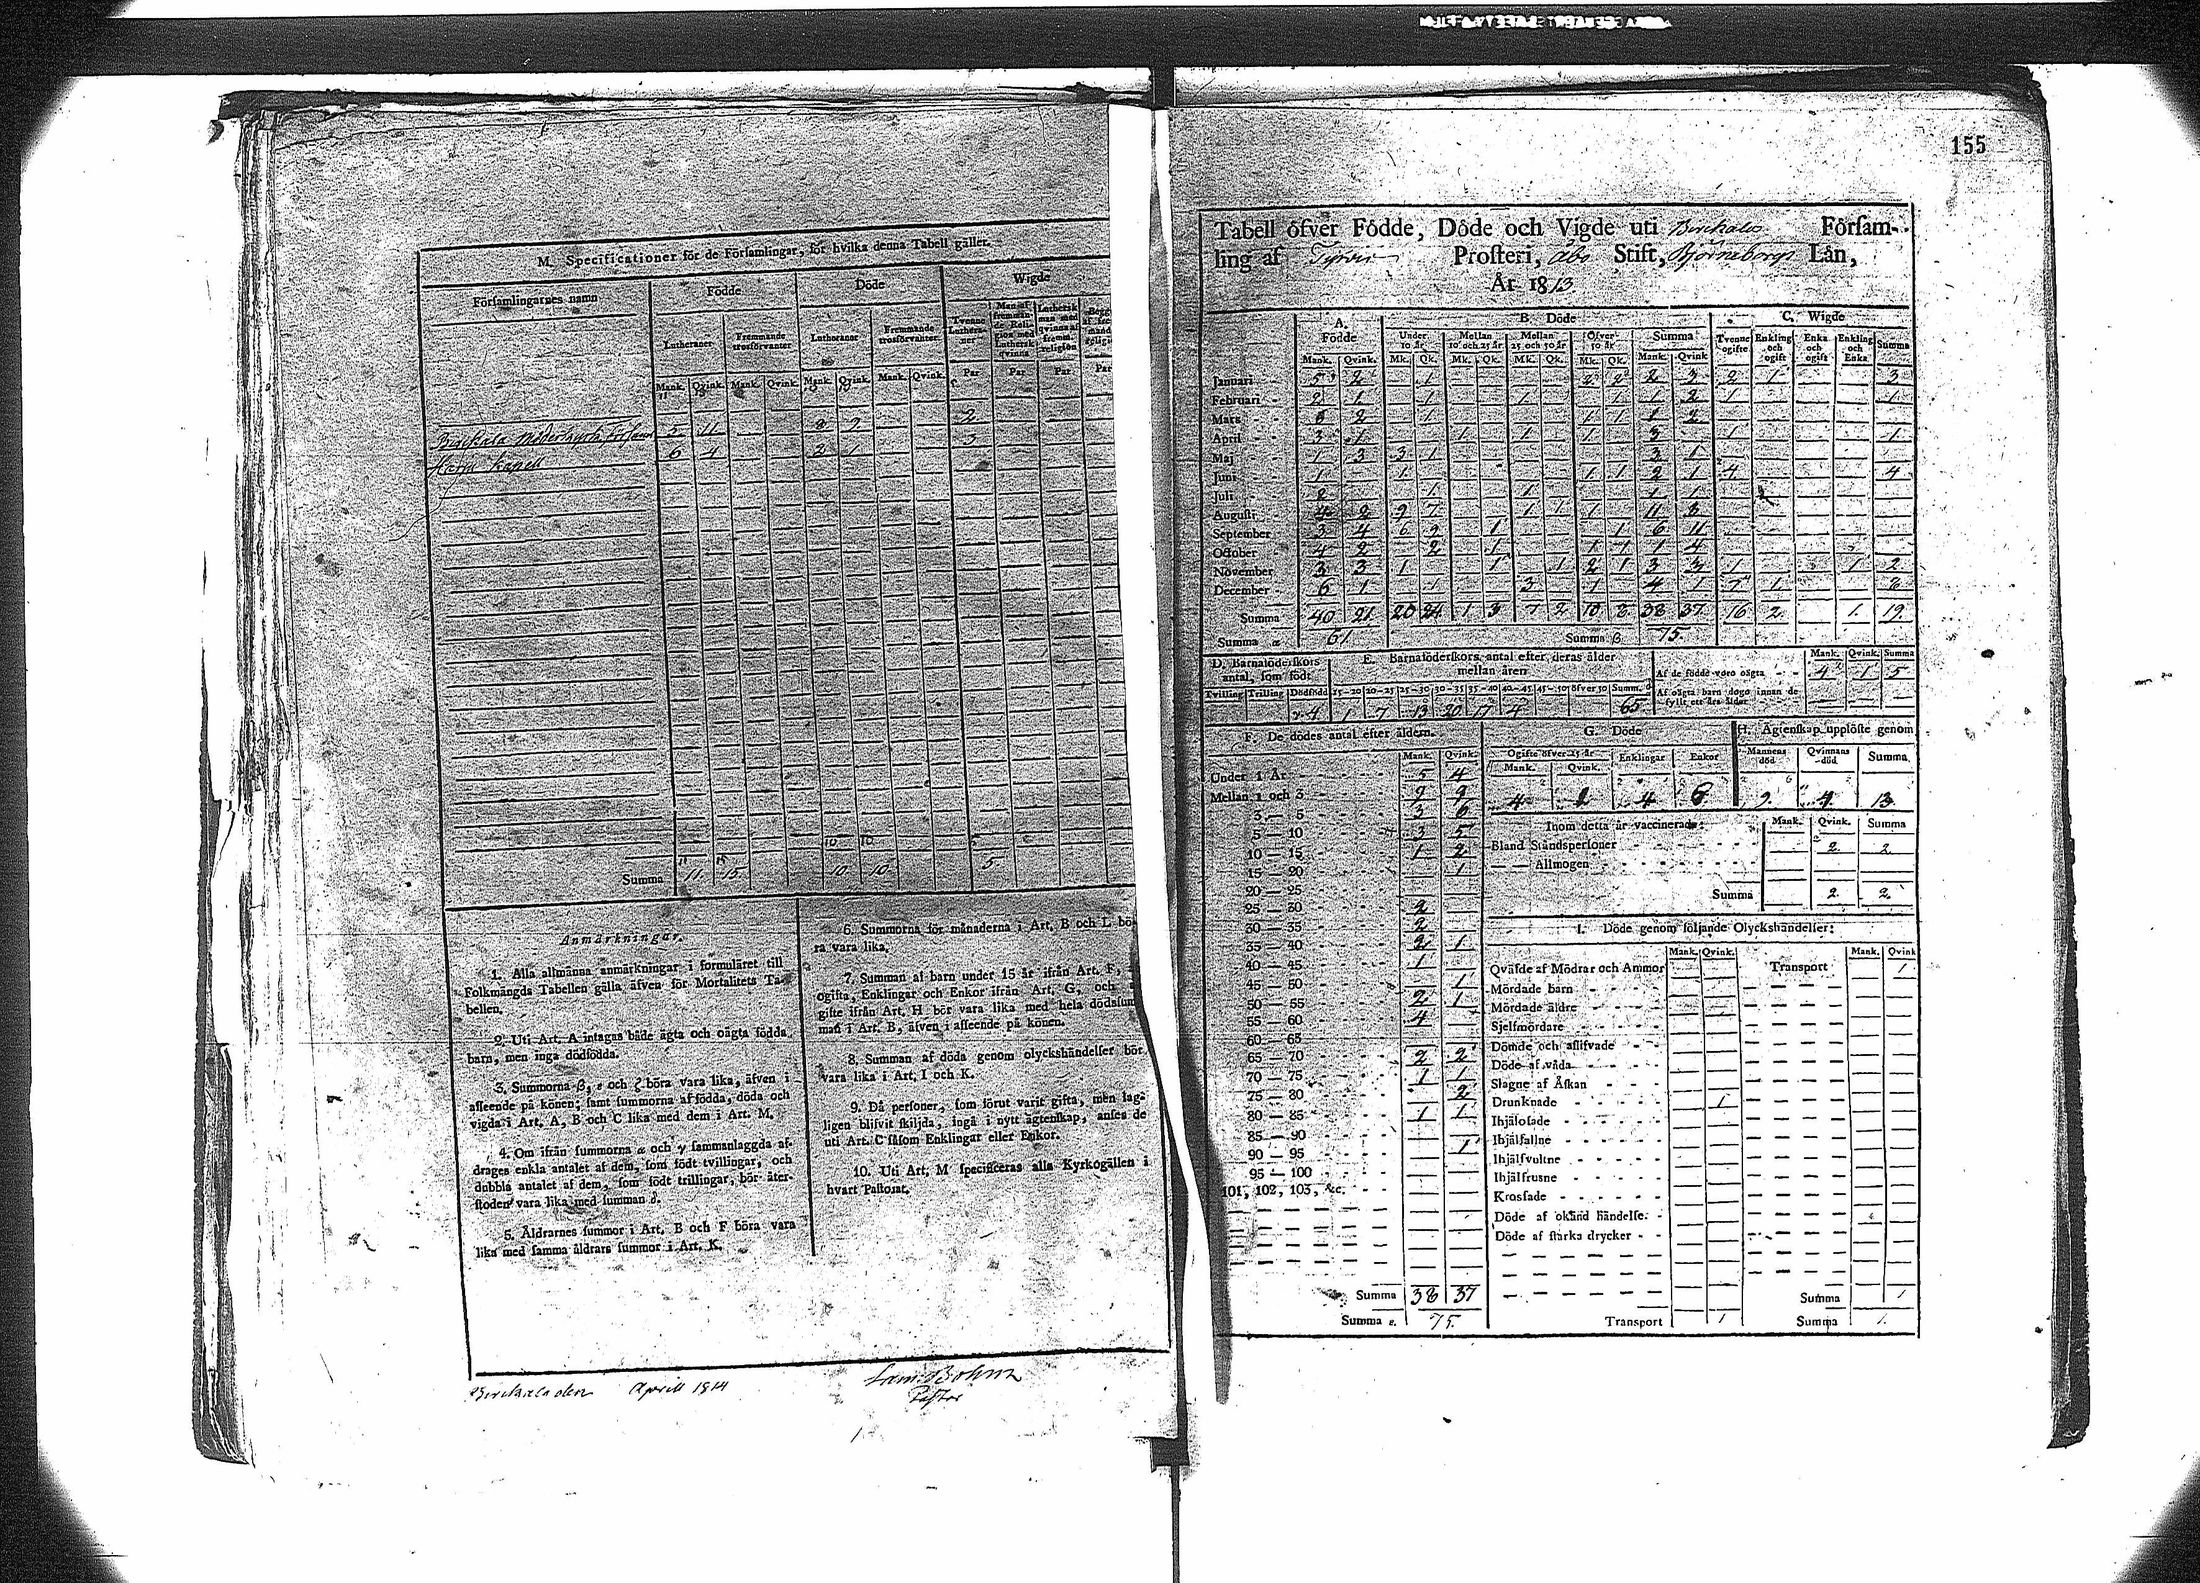 155
M. Specificationer för de Förſamlingar, för hvilka denna Tabell gäller.
Förſamlingarnes namn
Födde
Döde
Wigde
Lutheraner
Fremmande trosförvanter
Lutheraner
Fremmande trosförvanter
Tvenne Lutheraner
Mank. Qvink. Mank. Qvink. Mank. Qvink. Mank. Qvink. Par Par Par Par
5 11 8 9 2
Kapell 6 4 2 1 3
Summa 11 15 10 10 5
Anmärkningar.
1. Alla allmänna anmärkningar i formuläret till
Folkmängds Tabellen gälla äfven för Mortalitets Ta-
bellen.
2. Uti Art. A intagas både ägta och oägta födda
barn, men inga dödfödda.
3. Summorna β, ε och ζ böra vara lika, äfven i
afſeende på könen; ſamt ſummorna af födda, döda och
vigda i Art. A, B och C lika med dem i Art. M.
4. Om ifrån ſummorna α och γ ſammanlaggda af-
drages enkla antalet af dem, ſom födt tvillingar, och
dubbla antalet af dem, ſom födt trillingar, bör åter-
ſtoden vara lika med ſumman δ.
5. Åldrarnes ſummor i Art. B och F böra vara
lika med ſamma åldrars ſummor i Art. K.
6. Summorna för månaderna i Art. B och L bö-
ra vara lika.
7. Summan af barn under 15 år ifrån Art. F,
ogifta, Enklingar och Enkor ifrån Art. G, och
gifte ifrån Art. H bör vara lika med hela dödsſum
man i Art. B, äfven i afſeende på könen.
8. Summan af döda genom olyckshändelſer bör
vara lika i Art. I och K.
9. Då perſoner, ſom förut varit gifta, men lag-
ligen blifvit ſkiljda, ingå i nytt ägtenſkap, anſes de
uti Art. C ſåſom Enklingar eller Enkor.
10. Uti Art. M ſpecificeras alla Kyrkogällen i
hvart Paſtorat.
Birckala den Aprill 1814
Pastor
Tabell öfver Födde, Döde och Vigde uti Birckala Förſam-
ling af Tyrvis Proſteri, Åbo Stift, Björneborgs Län,
År 1813
A. Födde
B. Döde
C. Wigde
Under 10 år
Mellan 10 och 25 år
Mellan 25 och 50 år
Öfver 50 år
Summa
Tvenne ogifte
Enkling och ogift
Enka och ogift
Enkling och Enka
Summa
Mank. Qvink. Mk. Qk. Mk. Qk. Mk. Qk. Mk. Qk. Mank. Qvink
Januari 5 2 1 2 2 2 3 2 1 3
Februari 2 1 1 1 1 1 2 1 1
Mars 2 1 1 1 1 2
April 3 1 1 1 1 3 1 1
Maj 1 3 3 1 3 1
Juni 1 1 1 1 2 1 4 4
Juli 1 1 1 1
Auguſti 4 2 9 7 1 1 1 11 8
September 3 4 6 9 1 1 6 11
October 4 2 2 1 1 1 1 4
November 3 3 1 1 1 2 1 3 3 1 1 2
December 6 1 1 3 1 4 1 7 1 8
Summa 40 21 20 24 1 3 7 2 10 8 38 37 16 2 1 19
Summa α 61 Summa β 75
D. Barnaföderſkors antal, ſom födt
Tvilling Trilling Dödfödd
γ. 4
E. Barnaföderſkors antal efter deras ålder
mellan åren
15—20 20—25 25—30 30—35 35—40 40—45 45—50 öfver 50 Summ. δ
1 7 13 20 17 4 65
Mank. Qvink. Summa
Af de födde voro oägta 4 1 5
Af oägta barn dogo innan de
fyllt ett års ålder
F. De dödes antal efter åldern.
Mank. Qvink.
Under 1 År 5 4
Mellan 1 och 3 9 9
3 — 5 3 6
5 — 10 3 5
10 — 15 1 2
15 — 20 1
20 — 25
25 — 30 2
30 — 35 2
35 — 40 2 1
40 — 45 1
45 — 50 1
50 — 55 2 1
55 — 60 4
60 — 65
65 — 70 2 2
70 — 75 1 1
75 — 80 2
80 — 85 1 1
85 — 90
90 — 95 1
95 — 100
101, 102, 103, &c.
Summa 38 37
Summa ε. 75.
G. Döde
Ogifte öfver 15 år
Mank. Qvink.
Enklingar
Enkor
4 2 4 6
H. Ägtenſkap upplöſte genom
Mannens död
Qvinnans död
Summa
9. 4 13
Inom detta år vaccinerade: Mank. Qvink. Summa
Bland Ståndsperſoner 2 2
— — Allmogen
Summa 2 2
I. Döde genom följande Olyckshändelſer:
Mank. Qvink. Mank. Qvink
Qväfde af Mödrar och Ammor Transport 1
Mördade barn
Mördade äldre
Sjelfmördare
Dömde och aflifvade
Döde af våda
Slagne af Åſkan
Drunknade 1
Ihjälofade
Ihjälfallne
Ihjälfvultne
Ihjälfrusne
Krosſade
Döde af okänd händelſe
Döde af ſtarka drycker
Summa 1
Transport 1 Summa 1